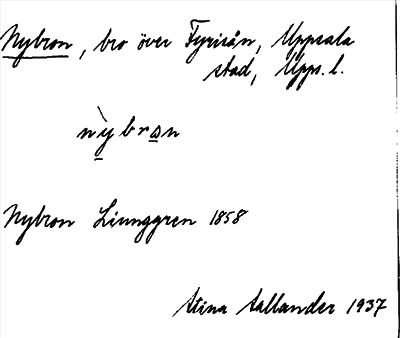 Nybron, bro över Fyrisån, Uppsala
stad, Upps. l.
nỳbrɷn
Nybron Ljunggren 1858
Stina Sallander 1937